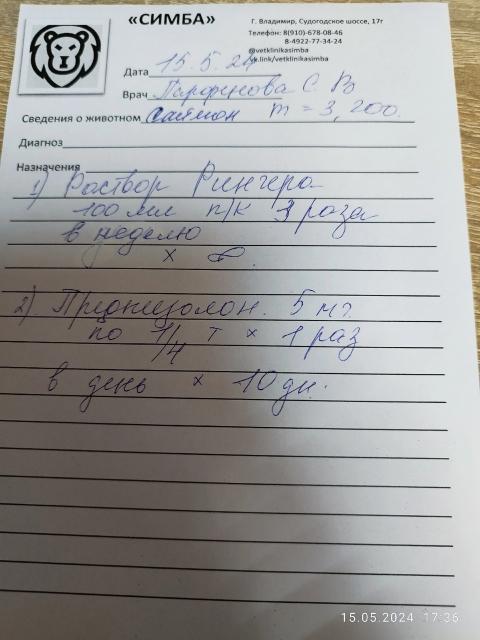 «СИМБА»
Г. Владимир, Судогодское шоссе, 17г
Телефон: 8(910)-678-08-46
8-4922-77-34-24
@vetklinikasimba
vk.link/vetklinikasimba
Дата 15.5.24
Врач Парфенова С. В
Сведения о животном Саймон m = 3,200.
Диагноз
Назначения
1) Раствор Рингера
100 мл п/к 3 раза
в неделю
x
2) Преднизолон. 5 мг.
по 1/4 т x 1 раз
в день x 10 дн.
15.05.2024 17:36